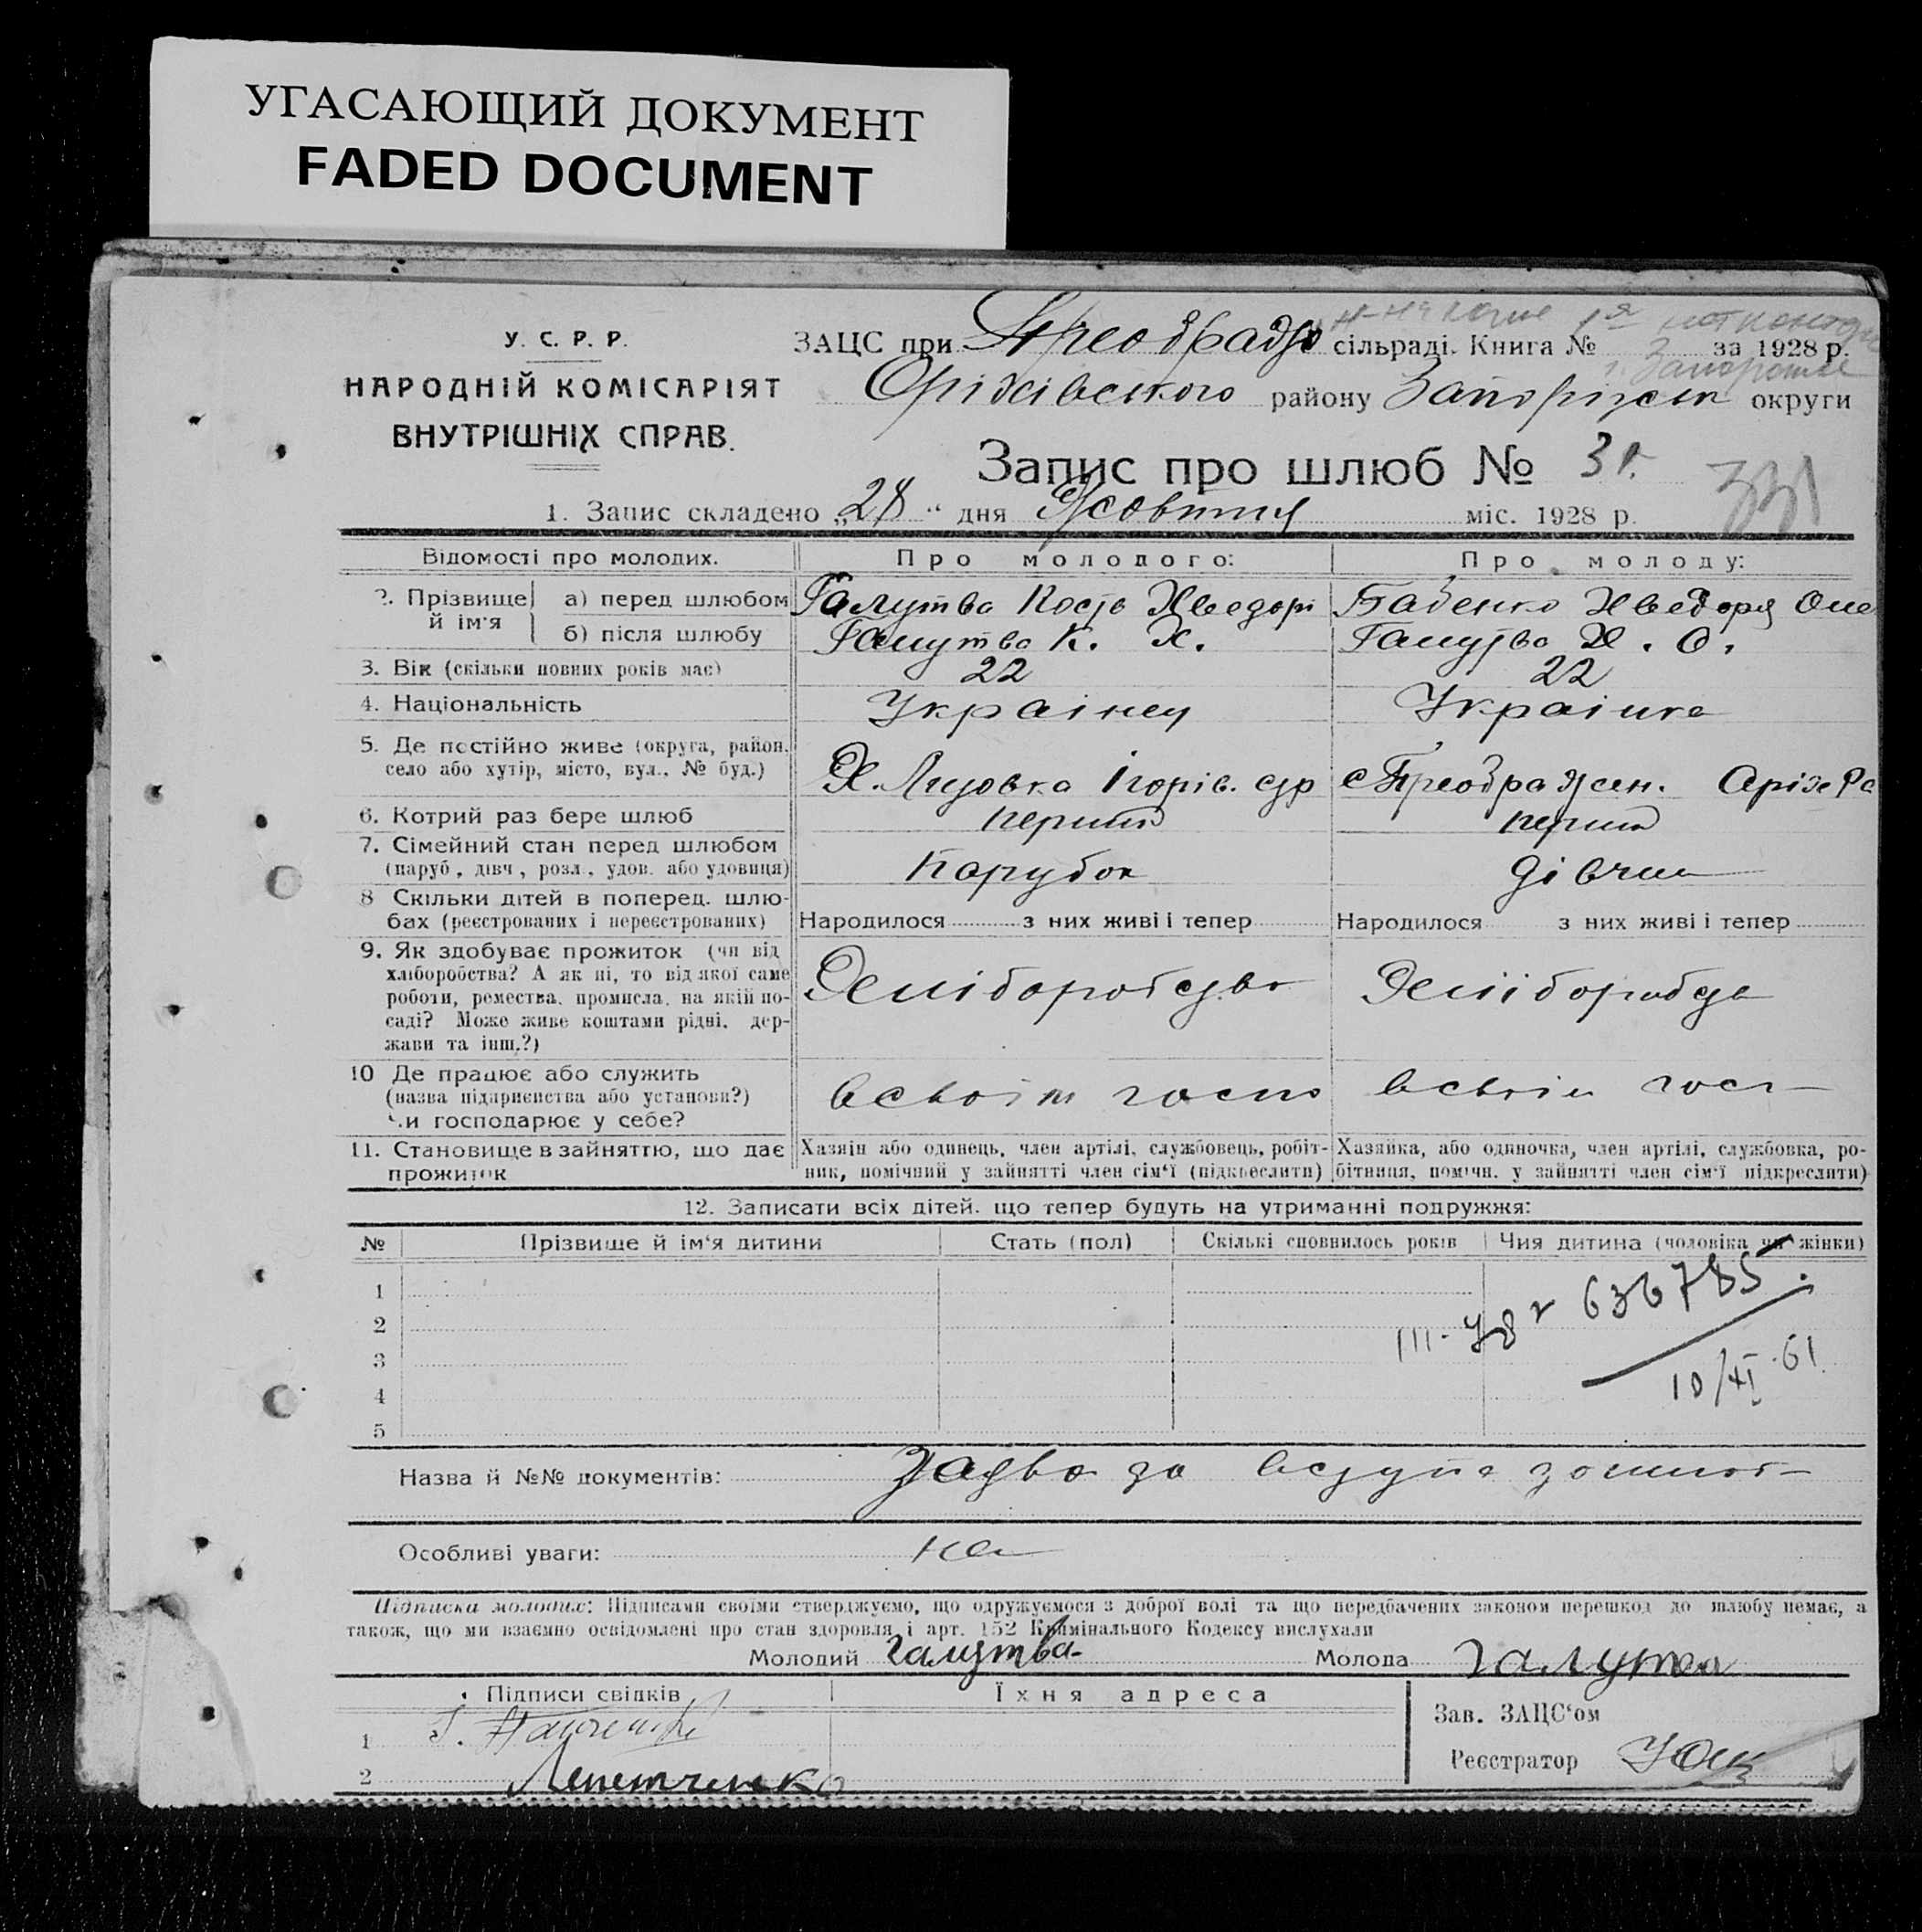 УГАСАЮЩИЙ ДОКУМЕНТ
FADED DOCUMENT
У. С. Р. Р.
НАРОДНІЙ КОМІСАРІЯТ
ВНУТРІШНІХ СПРАВ.
ЗАЦС при сільраді. Книга № за 1928 р.
Оріхівського району Запорізськ округи
Запис про шлюб №
331
1. Запис складено „28“ дня Жовтня міс. 1928 р.
Відомості про молодих.
Про молодого:
Про молоду:
2. Прізвище й ім'я
а) перед шлюбом
Галутва Кость Хведорі
Бабенко Хведоря Оле
б) після шлюбу
Галутва К. Х.
Галутва Х. О.
3. Вік (скільки повних років має)
22
22
4. Національність
Українец
Українка
5. Де постійно живе (округа, район, село або хутір, місто, вул., № буд.)
с Преображен. Оріх Ра
6. Котрий раз бере шлюб
перший
перший
7. Сімейний стан перед шлюбом
(паруб, дівч, розл., удов. або удовиця)
Парубок
дівчин
8 Скільки дітей в поперед. шлюбах (реєстрованих і нереєстрованих)
Народилося з них живі і тепер
Народилося з них живі і тепер
9. Як здобуває прожиток (чи від
хліборобства? А як ні, то від якої саме
роботи, ремества, промисла, на якій по-
саді? Може живе коштами рідні, дер-
жави та інш.?)
10 Де працює або служить
(назва підприємства або установи?)
Чи господарює у себе?
в своім госпо
в своім госп
11. Становище в зайняттю, що дає прожиток
Хазяїн або одинець, член артілі, службовець, робіт-
ник, помічний у зайнятті член сім'ї (підкреслити)
Хазяйка, або одиночка, член артілі, службовка, ро-
бітниця, помічн. у зайнятті член сім'ї підкреслити)
12. Записати всіх дітей, що тепер будуть на утриманні подружжя:
№ Прізвище й ім'я дитини Стать (пол) Скількі сповнилось років Чия дитина (чоловіка чи жінки)
1
2
3
4
5
636785
10/XI-61
Назва й №№ документів:
Особливі уваги:
Підписка молодих: Підписами своїми стверджуємо, що одружуємося з доброї волі та що передбачених законом перешкод до шлюбу немає, а
також, що ми взаємно освідомлені про стан здоровля і арт. 152 Кримінального Кодексу вислухали
Молодий Галутва
Молода Галутва
Підписи свідків
Їхня адреса
Зав. ЗАЦС'ом
1
Реєстратор
2